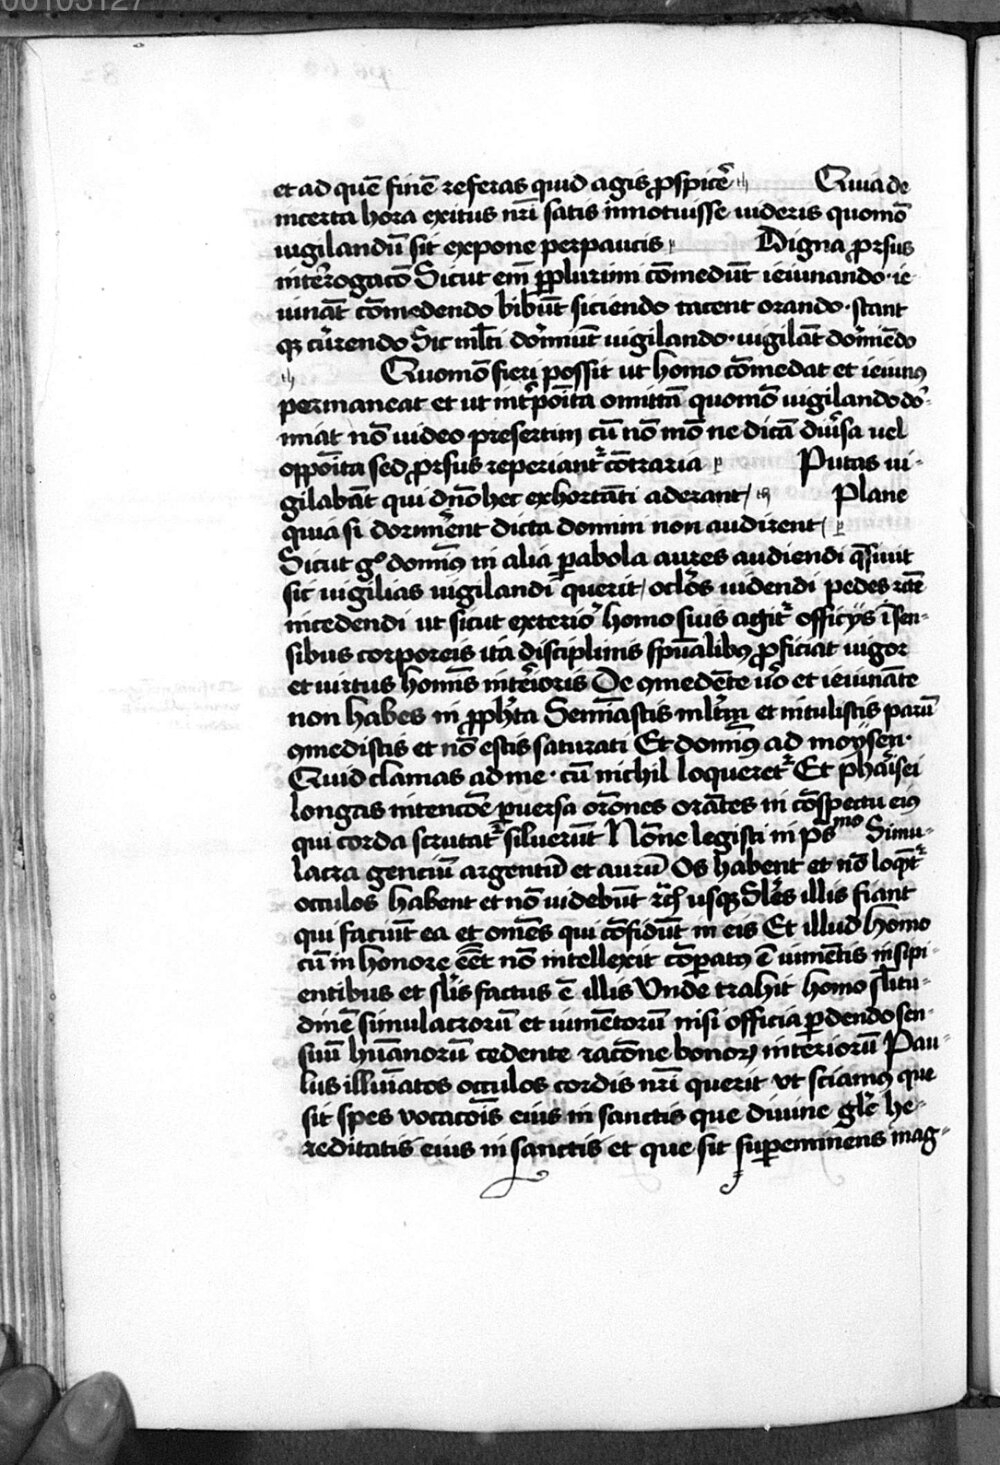 00103127
et ad quē finē referas quid agis ꝓspice᷑ Quia de
incerta hora exitus nr̄i satis innotuisse uideris quomō
uigilandū sit expone perpaucis Digna ꝓrsus
inter̄ogacō Sicut em̄ ꝑplurimi cōmedūt ieiunando· ie
iunāt cōmedendo bibūt siciendo tacent orando· stant
qꝫ cur̄endo Sic ml̄ti dormiūt uigilando· uigilāt dormiēdo
Quomō fieri possit ut homo cōmedat et ieiunꝰ
permaneat et ut int̄poīta omittā quomō uigilando dor-
miat nō uideo presertim cū nō mō ne dicā diuersa uel
oppoīta sed ꝓrsus reperiant᷑ cōtraria Putas ui-
gilabāt qui dn̄o hec exhortāti aderant/ Plane
quia si dormirent dicta domini non audirent/
Sicut gͦ dominꝰ in alia ꝑabola aures audiendi q̄siuit
sic uigilias uigilandi querit/ oclōs uidendi pedes rc̄te
incedendi ut sicut exterior homo suis agit᷑ officijs ī sen-
sibus corporeis ita disciplinis spūalibꝫ ꝓficiat uigor
et uirtus hominis interioris De ꝯmedēte uͦo et ieiunāte
non habes in ꝓph̄ta Seminastis ml̄tum et intulistis parū
ꝯmedistis et nō estis saturati Et dominꝰ ad moysen·
Quid clamas ad me· cū nichil loqueret᷑ Et pharisei
longas intencōe ꝑuersa orōnes orātes in cōspectu eiꝰ
qui corda scrutat᷑ siluerūt Nōne legisti in psͫᵒ Simu-
lacra genciū argentū et aurū Os habent et nō loqn̄t᷑
occulos habent et nō uidebūt rc̄ usqꝫ Sl̄es illis fiant
qui faciūt ea et om̄es qui cōfidūt in eis Et illud homo
cū in honore eēt nō intellexit cōparatꝰ ē iumētis insipi-
entibus et sl̄is factus ē illis Vnde trahit homo sl̄itu-
dinē simulacrorū et iumētorū nisi officia ꝑdendo sen-
suū hūanorū cedente racōne bonoꝝ interiorū Pau-
lus illuīatos occulos cordis nr̄i querit vt sciamꝰ que
sit spes vocacōis eius in sanctis que diuine gl̄e he-
reditatis eius in sanctis et que sit suꝑeminens mag-